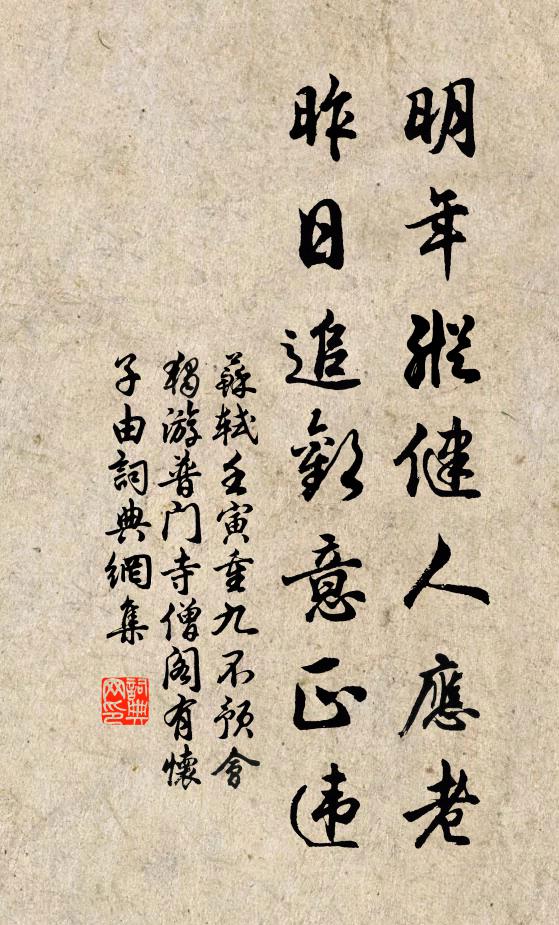 明年縱健人應老
昨日追歡意正违
蘇軾壬寅重九不預會
獨游普門寺僧閣有懷
子由詞典網集
詞典
网印